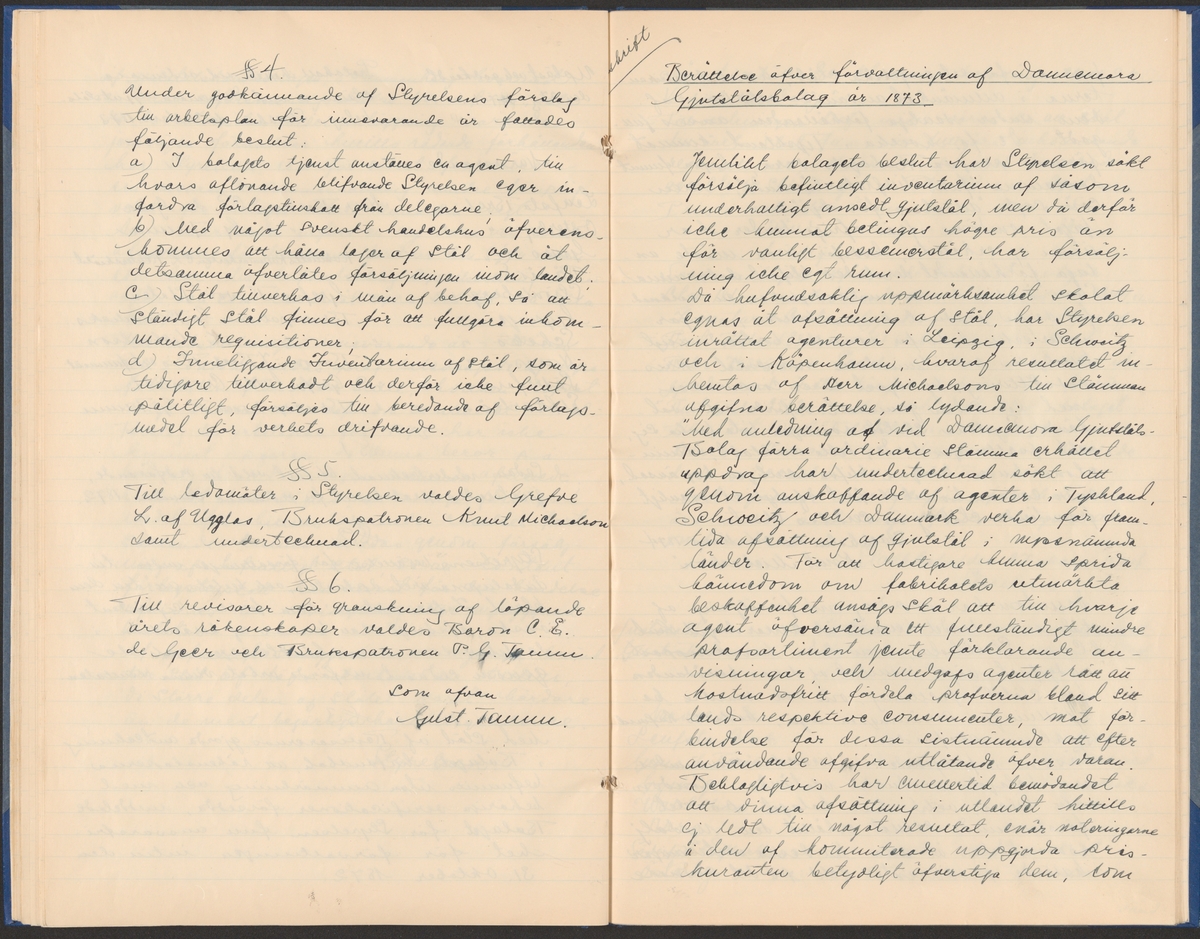 §§ 4.
Under godkännande af Styrelsens förslag
till arbetsplan för innevarande år fattades
följande beslut:
a) I bolagets tjenst anställes en agent, till
hvars aflönande blifvande Styrelsen eger in-
fordra förlagstillskott från delegarne;
b) Med något svenskt handelshus öfverens-
kommes att hålla lager af Stål och åt
detsamma öfverlåtes försäljningen inom landet;
c) Stål tillverkas i mån af behof, så att
ständigt Stål finnes för att fullgöra inkom-
mande requisitioner;
d) Inneliggande Inventarium af Stål, som är
tidigare tillverkadt och derför icke fullt
pålitligt, försäljes till beredande af förlags-
medel för verkets drifvande.
§§ 5.
Till ledamöter i Styrelsen valdes Grefve
L. af Ugglas, Brukspatronen Knut Michaelson
samt undertecknad.
§§ 6.
Till revisorer för granskning af löpande
årets räkenskaper valdes Baron C. E.
de Geer och Brukspatronen P. G. Tamm.
Som ofvan
Gust. Tamm.
skrift
Berättelse öfver förvaltningen af Dannemora
Gjutstålsbolag år 1873
Jemlikt bolagets beslut har Styrelsen sökt
försälja befintligt inventarium af såsom
underhaltigt ansedt Gjutstål, men då derför
icke kunnat betingas högre pris än
för vanligt bessemerstål, har försälj-
ning icke egt rum.
Då hufvudsaklig uppmärksamhet skolat
egnas åt afsättning af Stål, har Styrelsen
inrättat agenturer i Leipzig, i Schweitz
och i Köpenhamn, hvaraf resultatet in-
hemtas af Herr Michaelsons till Stämman
afgifna berättelse, så lydande:
"Med anledning af vid Dannemora Gjutståls-
Bolag förra ordinarie Stämma erhållet
uppdrag har undertecknad sökt att
genom anskaffande af agenter i Tyskland,
Schweitz och Danmark verka för fram-
tida afsättning af Gjutstål i nyssnämnda
länder. För att hastigare kunna sprida
kännedom om fabrikatets utmärkta
beskaffenhet ansågs skäl att till hvarje
agent öfversända ett fullständigt mindre
profsortiment jemte förklarande an-
visningar, och medgafs agenter rätt att
kostnadsfritt fördela profverna bland sitt
lands respektive consumenter, mot för-
bindelse för dessa sistnämnde att efter
användande afgifva utlåtande öfver varan.
Beklagligtvis har emellertid bemödandet
att vinna afsättning i utlandet hittills
ej ledt till något resultat, enär noteringarne
å den af kommiterade uppgjorda pris-
kuranten betydligt öfverstiga dem, som